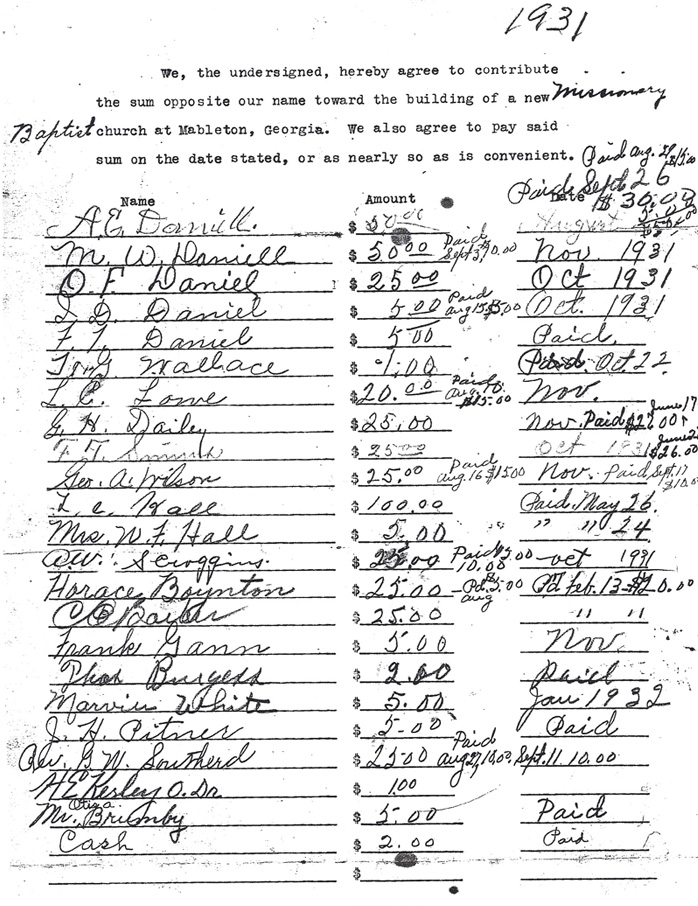 1931
We, the undersigned, hereby agree to contribute
the sum opposite our name toward the building of a new Missionary
Baptist church at Mableton, Georgia. We also agree to pay said
sum on the date stated, or as nearly so as is convenient. Paid Aug.
Paid Sept 26
Name Amount Date $30.00
A.E. Daniell. $ 50.00 August
M. W. Daniell $ 50.00 Paid Sept 3, $10.00 Nov. 1931
O. F. Daniel $ 25.00 Oct 1931
J. D. Daniel $ 5.00 Paid Aug 15 $5.00 Oct. 1931
F. T. Daniel $ 5.00 Paid.
Wallace $ 1.00 Paid Oct 22
L. C. Lowe $ 20.00 Paid Aug. 10. $15.00 Nov.
G. H. Dailey $ 25.00 Nov. Paid June 17
F. T. $ 25.00 Oct 1931 June $26.00
Geo. A. Wilson $ 25.00 Paid Aug. 16 $15.00 Nov. Paid, Sept. 17 $10.00
L. C. Hall $ 100.00 Paid. May 26.
Mrs. W. F. Hall $ 5.00 " " 24
A.W. Scroggins. $ 25.00 Paid 10.00 Oct 1931
Horace Boynton $ 25.00 - Pd. $5.00 Aug Pd. Feb. 13 - $20.00
C C $ 25.00 " "
Frank Gann $ 5.00 Nov.
Thos Burgess $ 2.00 Paid
Marvin White $ 5.00 Jan 1932
J. H. Pitner $ 5.00 Paid
Rev. B. W. Southerd $ 25.00 Paid Aug 27, 10.00, Sept. 11. 10.00
Kesley O. Dr $ 1.00
Mr. Otis A. Brumby $ 5.00 Paid
Cash $ 2.00 Paid
$